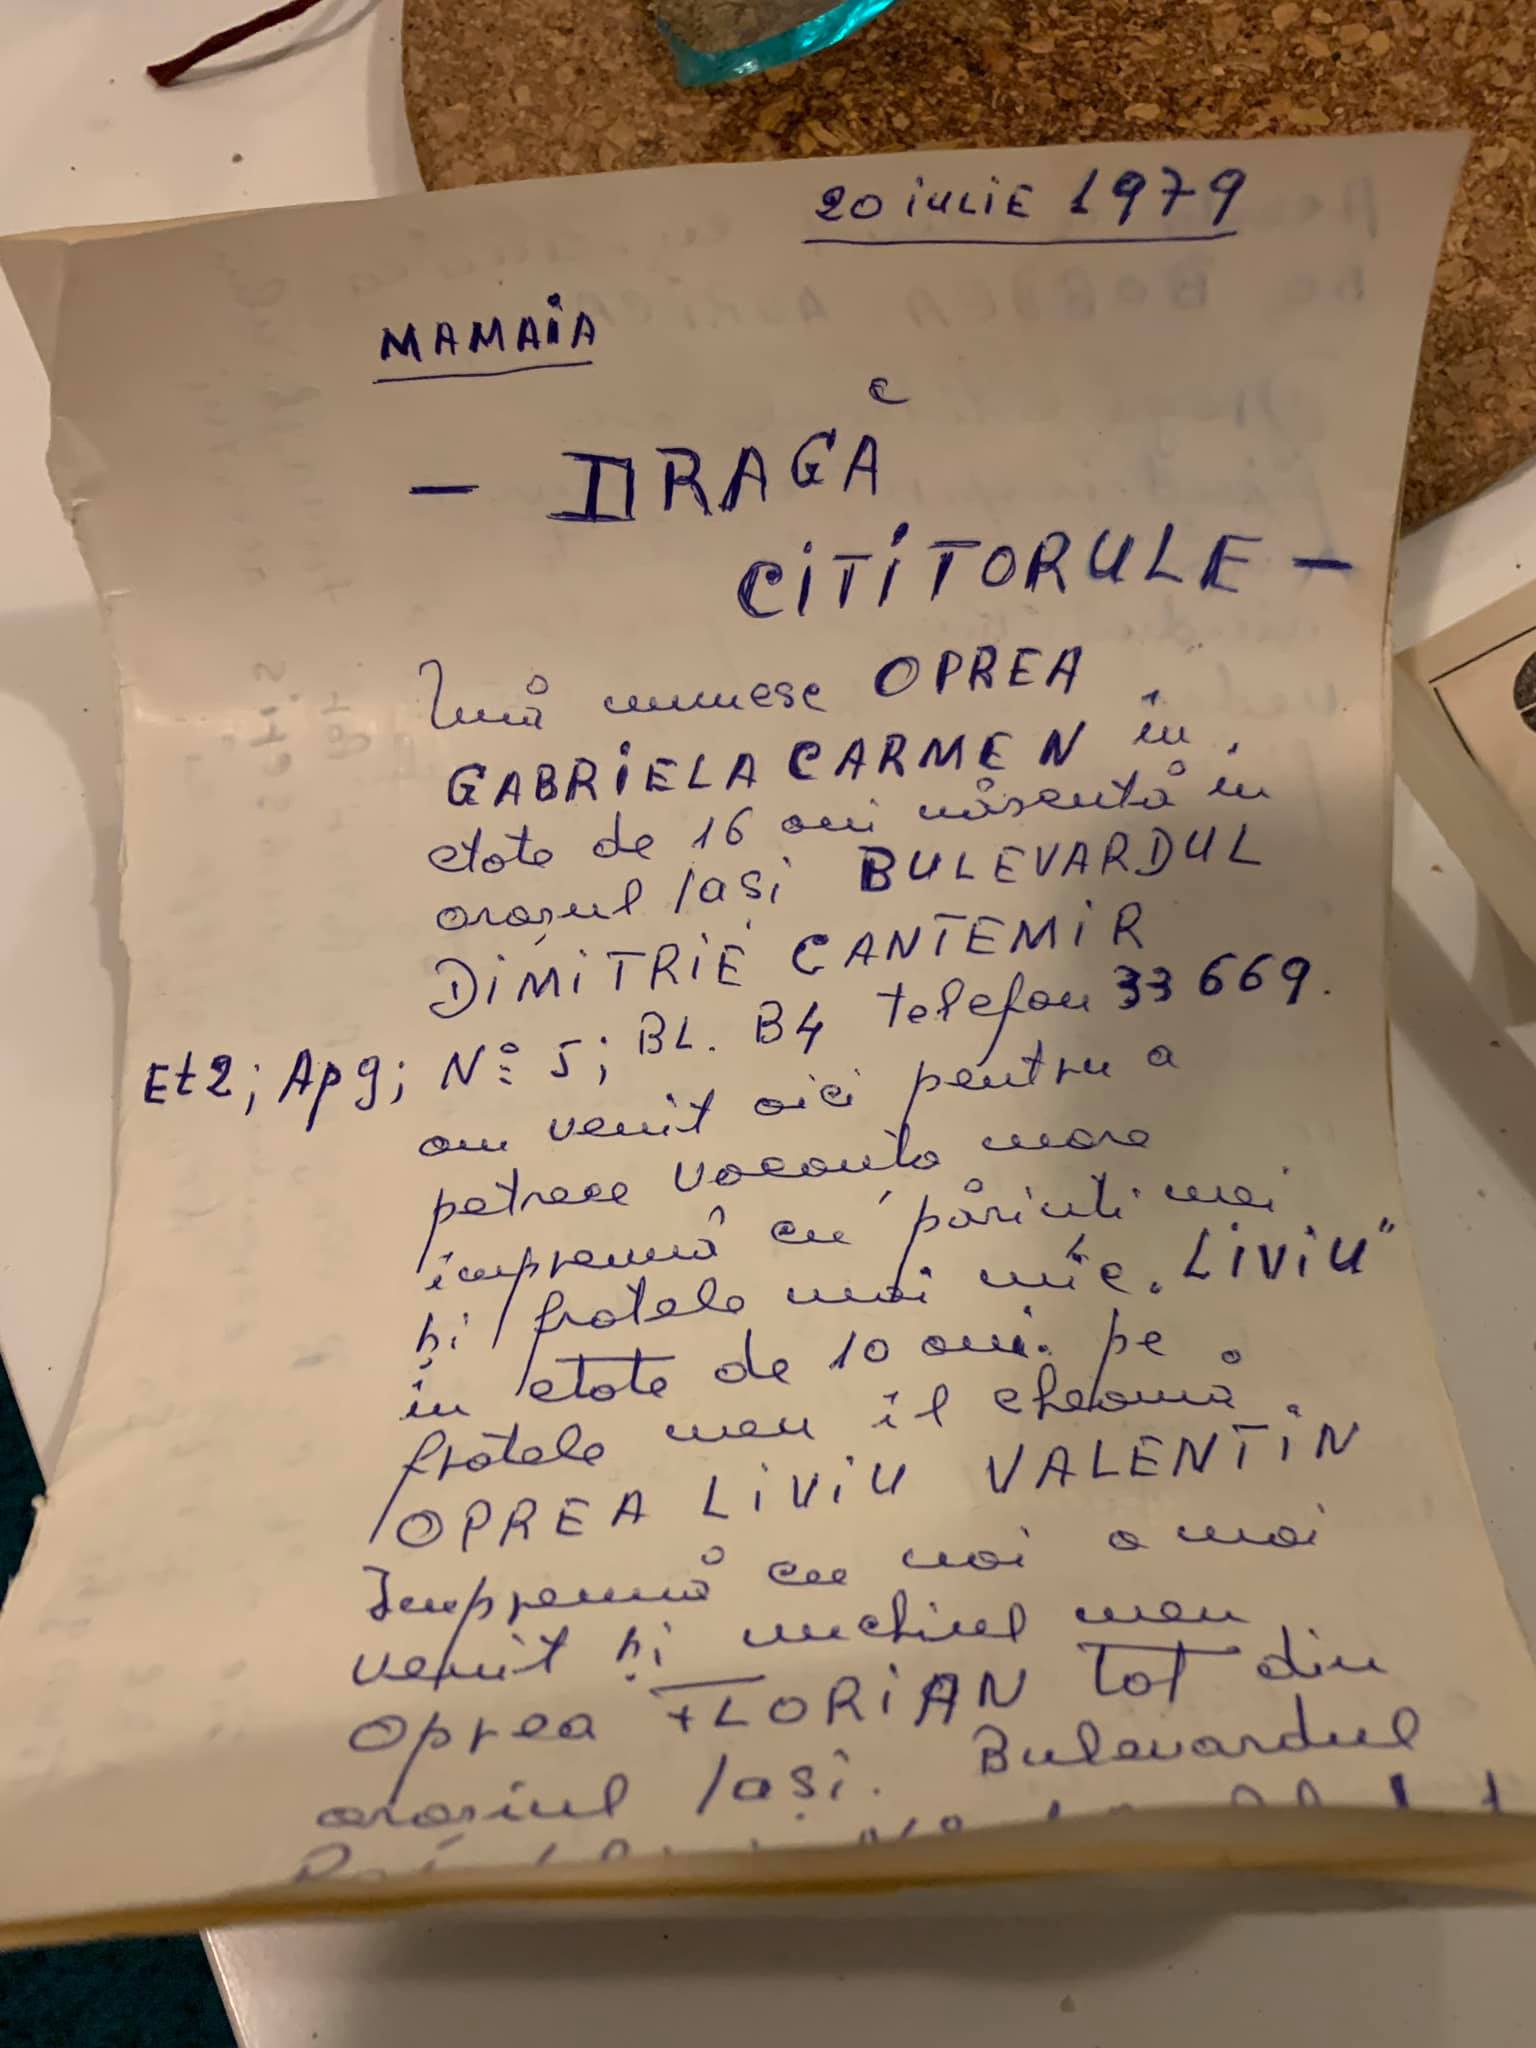 20 iULiE 1979
MAMAiA
- DRAGĂ
CiTiTORULE -
Îmă numesc OPREA
GABRiELA CARMEN în
etate de 16 ani născută în
orașul Iași BULEVARDUL
DiMiTRiE CANTEMiR
Et2; Ap9; Nº 5; BL. B4 telefon 33 669.
am venit aici pentru a
petrece vacanța mare
împreună cu părinți mei
și fratele mai mic. LiViU"
în etate de 10 ani. pe
fratele meu îl cheamă
OPREA LiViU VALENTiN
Împreună cu noi a mai
venit și unchiul meu
Oprea FLORiAN tot din
orașiul Iași. Bulevardul